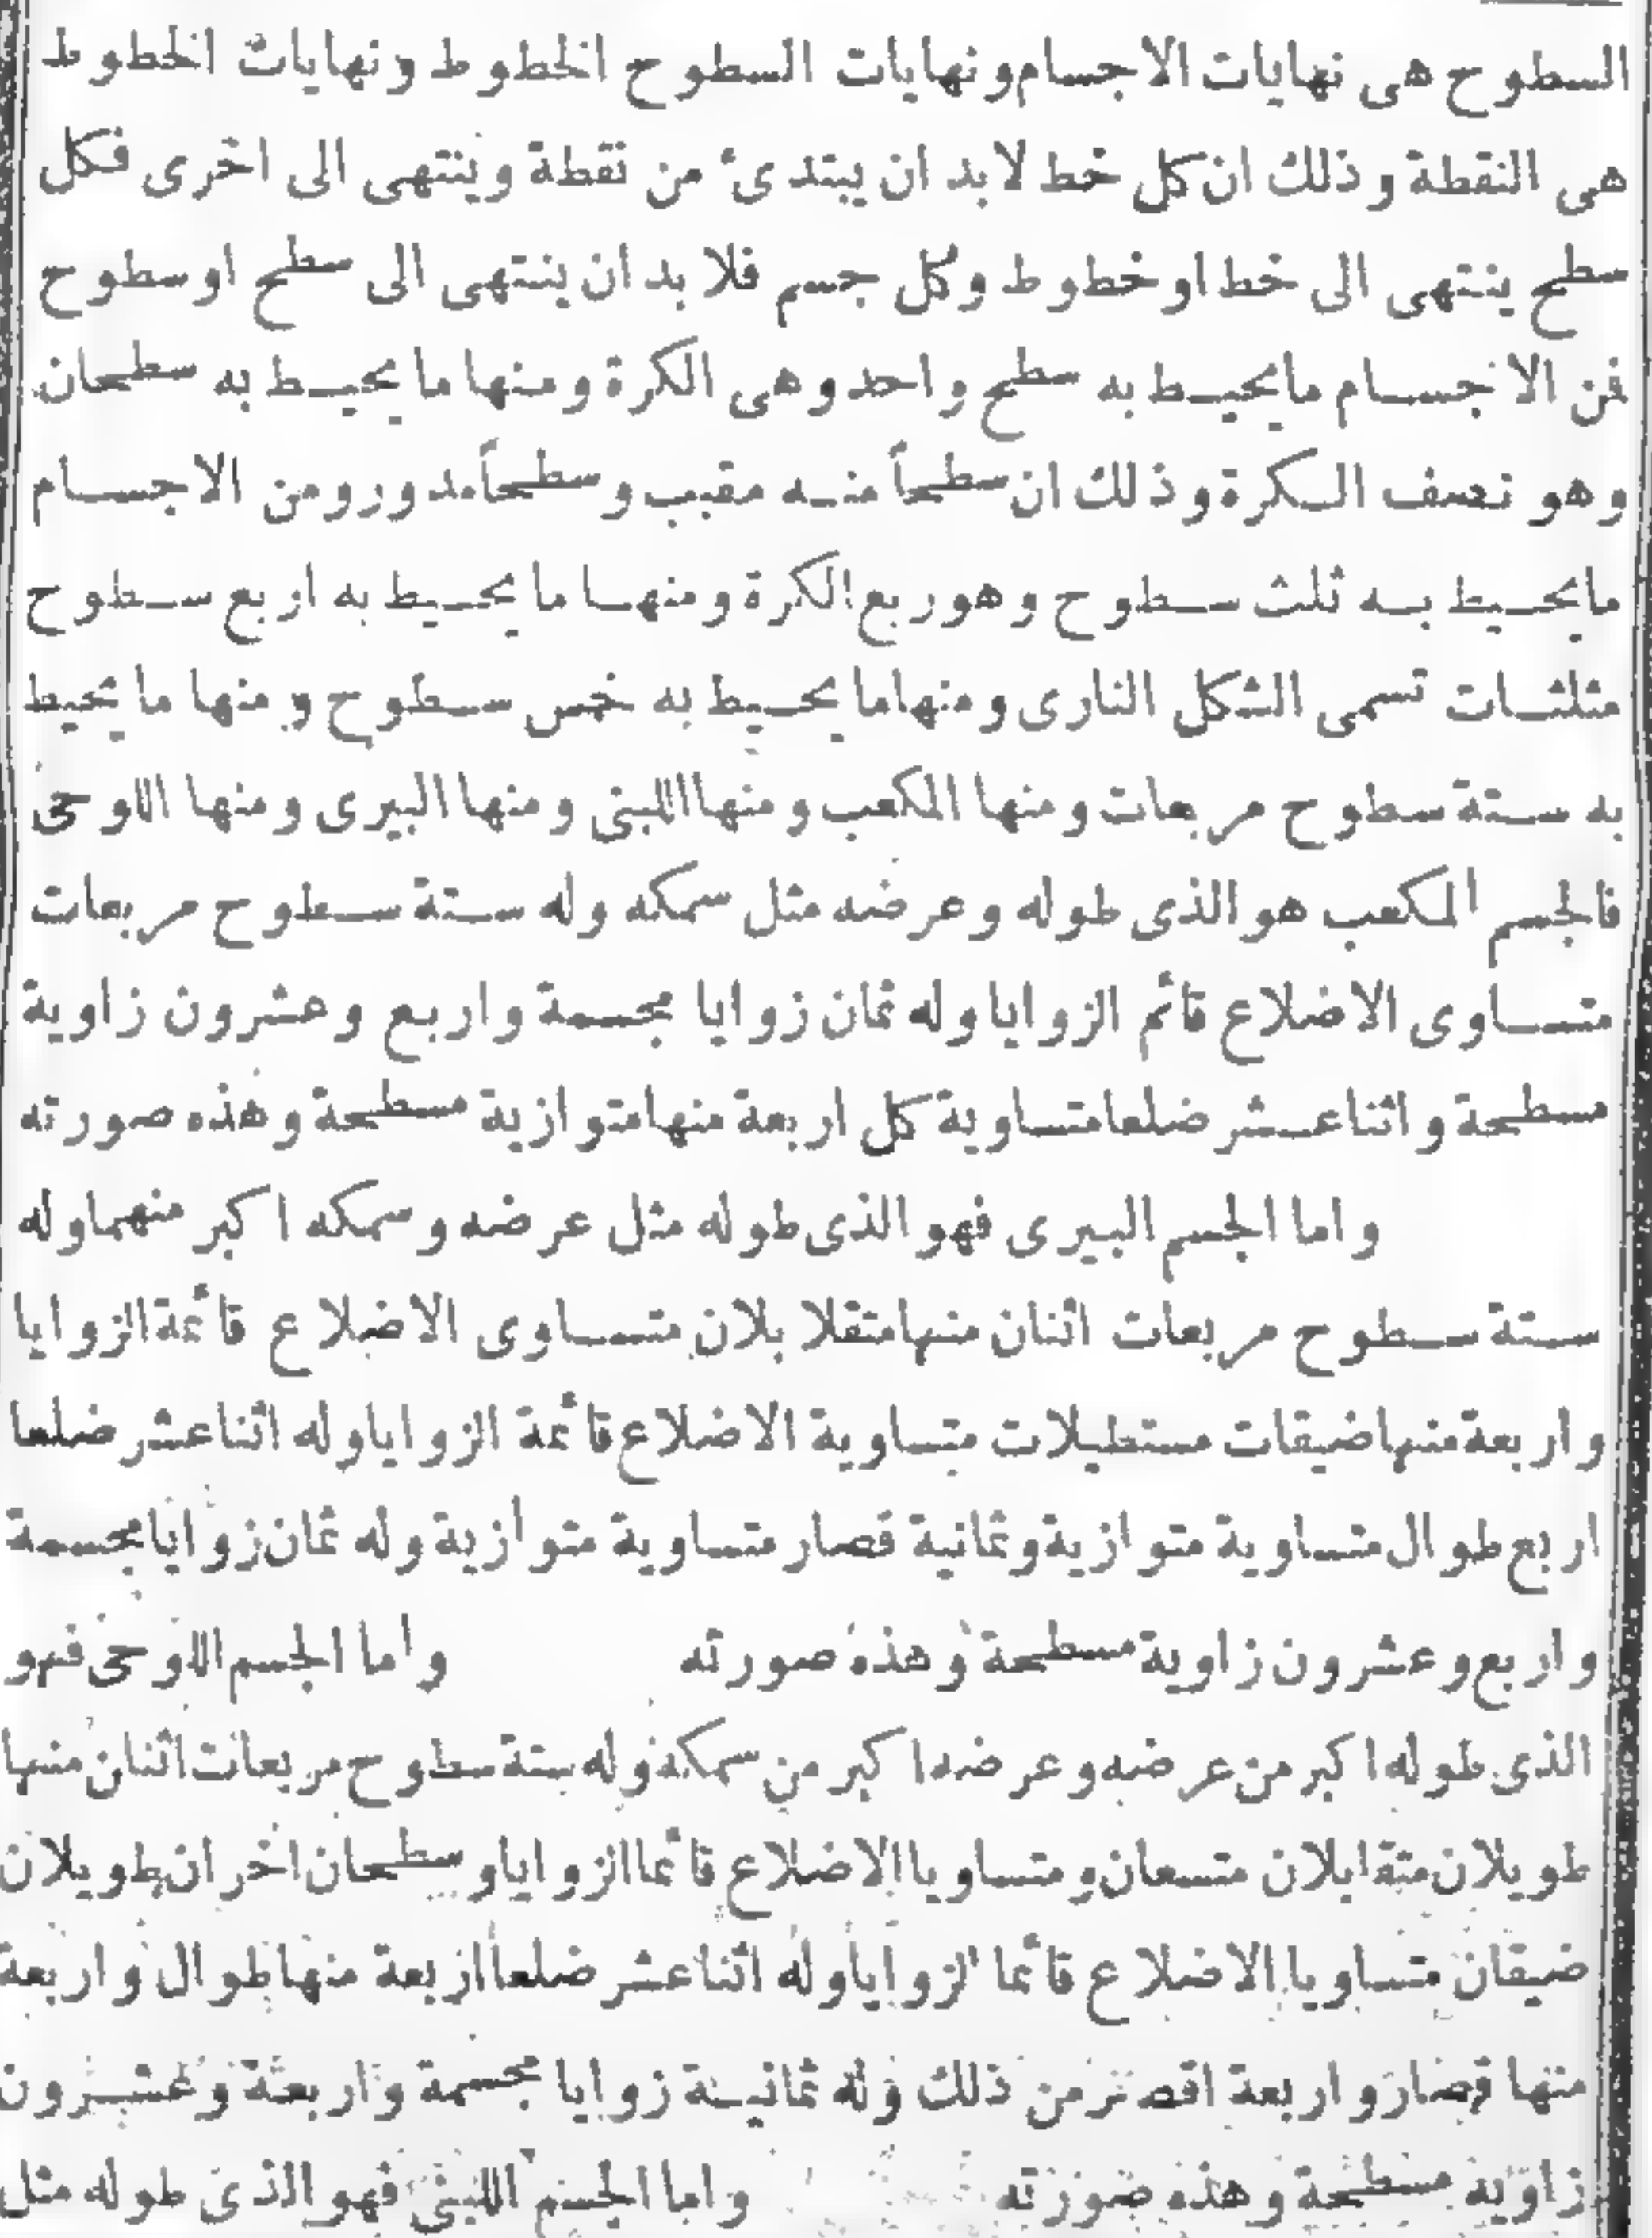 السطوح هى نهايات الاجسام ونهايات السطوح الخطوط ونهايات الخطوط
هى النقطة وذلك ان كل خط لابد ان يبتدىء من نقطة وينتهى الى اخرى فكل
سطح ينتهى الى خط او خطوط وكل جسم فلا بد ان ينتهى الى سطح او سطوح
فمن الاجسام مايحيط به سطح واحد وهى الكرة ومنها ما يحيط به سطحان
وهو نصف الكرة وذلك ان سطحاً منه مقبب وسطحاً مدور ومن الاجسام
مايحيط به ثلث سطوح وهو ربع الكرة ومنها ما يحيط به اربع سطوح
مثلثات تسمى الشكل النارى ومنها ما يحيط به خمس سطوح ومنها ما يحيط
به ستة سطوح مربعات ومنها المكعب ومنها اللبنى ومنها البيرى ومنها اللوحى
فالجسم المكعب هو الذى طوله وعرضه مثل سمكه وله ستة سطوح مربعات
متساوى الاضلاع قائم الزوايا وله ثمان زوايا مجسمة واربع وعشرون زاوية
مسطحة واثنا عشر ضلعا متساوية كل اربعة منها متوازية مسطحة وهذه صورته
واما الجسم البيرى فهو الذى طوله مثل عرضه وسمكه اكبر منهما وله
ستة سطوح مربعات اثنان منها متقلا بلان متساوى الاضلاع قائمة الزوايا
واربعة منها ضيقات مستطيلات متساوية الاضلاع قائمة الزوايا وله اثنا عشر ضلعا
اربع طوال متساوية متوازية وثمانية قصار متساوية متوازية وله ثمان زوايا مجسمة
واربع وعشرون زاوية مسطحة وهذه صورته واما الجسم اللوحى فهو
الذى طوله اكبر من عرضه وعرضه اكبر من سمكه وله ستة سطوح مربعات اثنان منها
طويلان متقابلان متسعان ومتساويا الاضلاع قائما الزوايا وسطحان اخران طويلان
ضيقان متساويا الاضلاع قائما الزوايا وله اثنا عشر ضلعا اربعة منها طوال واربعة
منها قصار واربعة اقصر من ذلك وله ثمانية زوايا مجسمة واربعة وعشرون
زاوية مسطحة وهذه صورته واما الجسم اللبنى فهو الذى طوله مثل